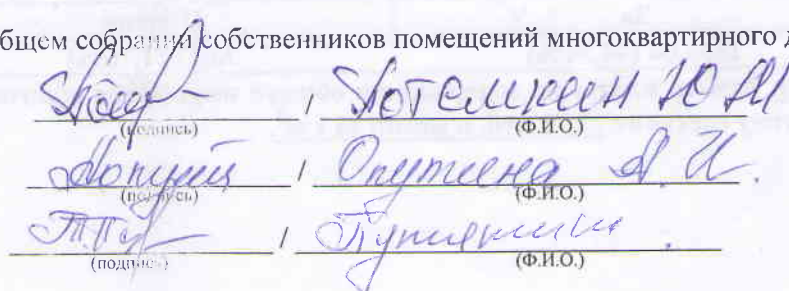 бщем собрании собственников помещений многоквартирного д
/ Потемкин Ю М
(подпись) (Ф.И.О.)
/ Опутина А. И.
(подпись) (Ф.И.О.)
/
(подпись) (Ф.И.О.)